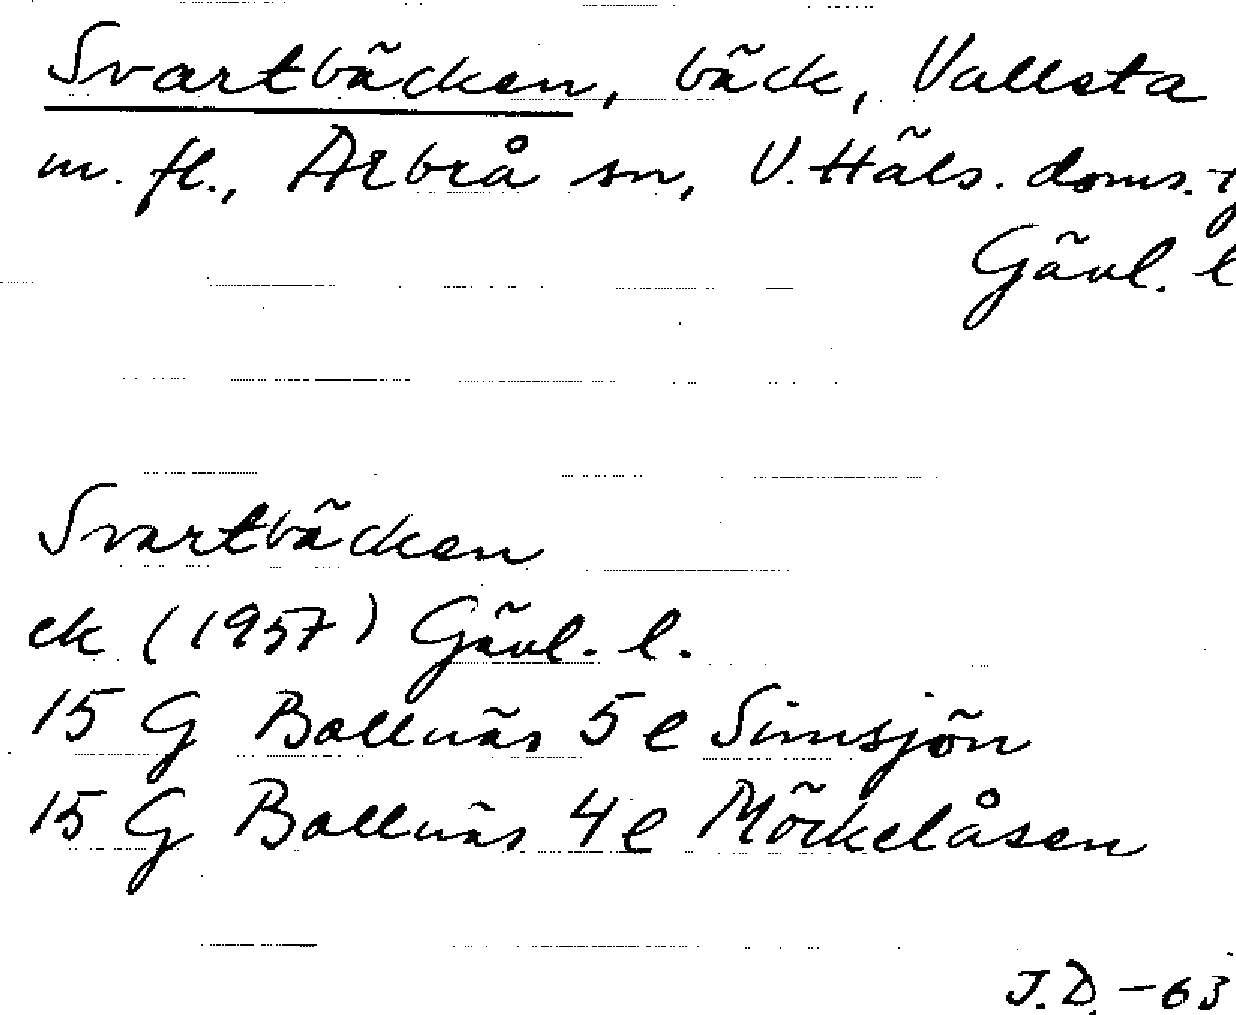 Svartbäcken, bäck, Vallsta
m. fl., Arbrå sn, V. Häls. doms.
Gävl. l
Svartbäcken
ek (1957) Gävl. l.
15 G Bollnäs 5 e Simsjön
15 G Bollnäs 4 e Möckelåsen
J.D. -63